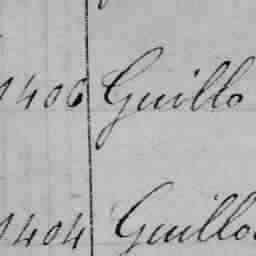 1406 Guillo
1404 Guillo